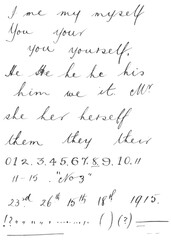 I me my myself
You your
you yourself.
He He he he his
him we it Mr
she her herself
them they their
0 1 2. 3. 4. 5. 6. 7. 8. 9. 10. 11
11-15. "No 3"
23rd 26th 15th 18th 1915.
( ) (?)